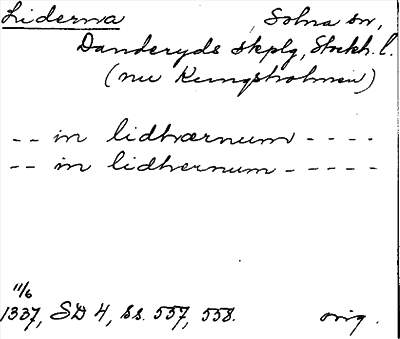 Liderna , Solna sn,
Danderyds skplg, Stockh. l.
(nu Kungsholmen)
-- in lidhærnum ----
-- in lidhernum -----
11/6
1337, SD 4, ss. 557, 558. orig.